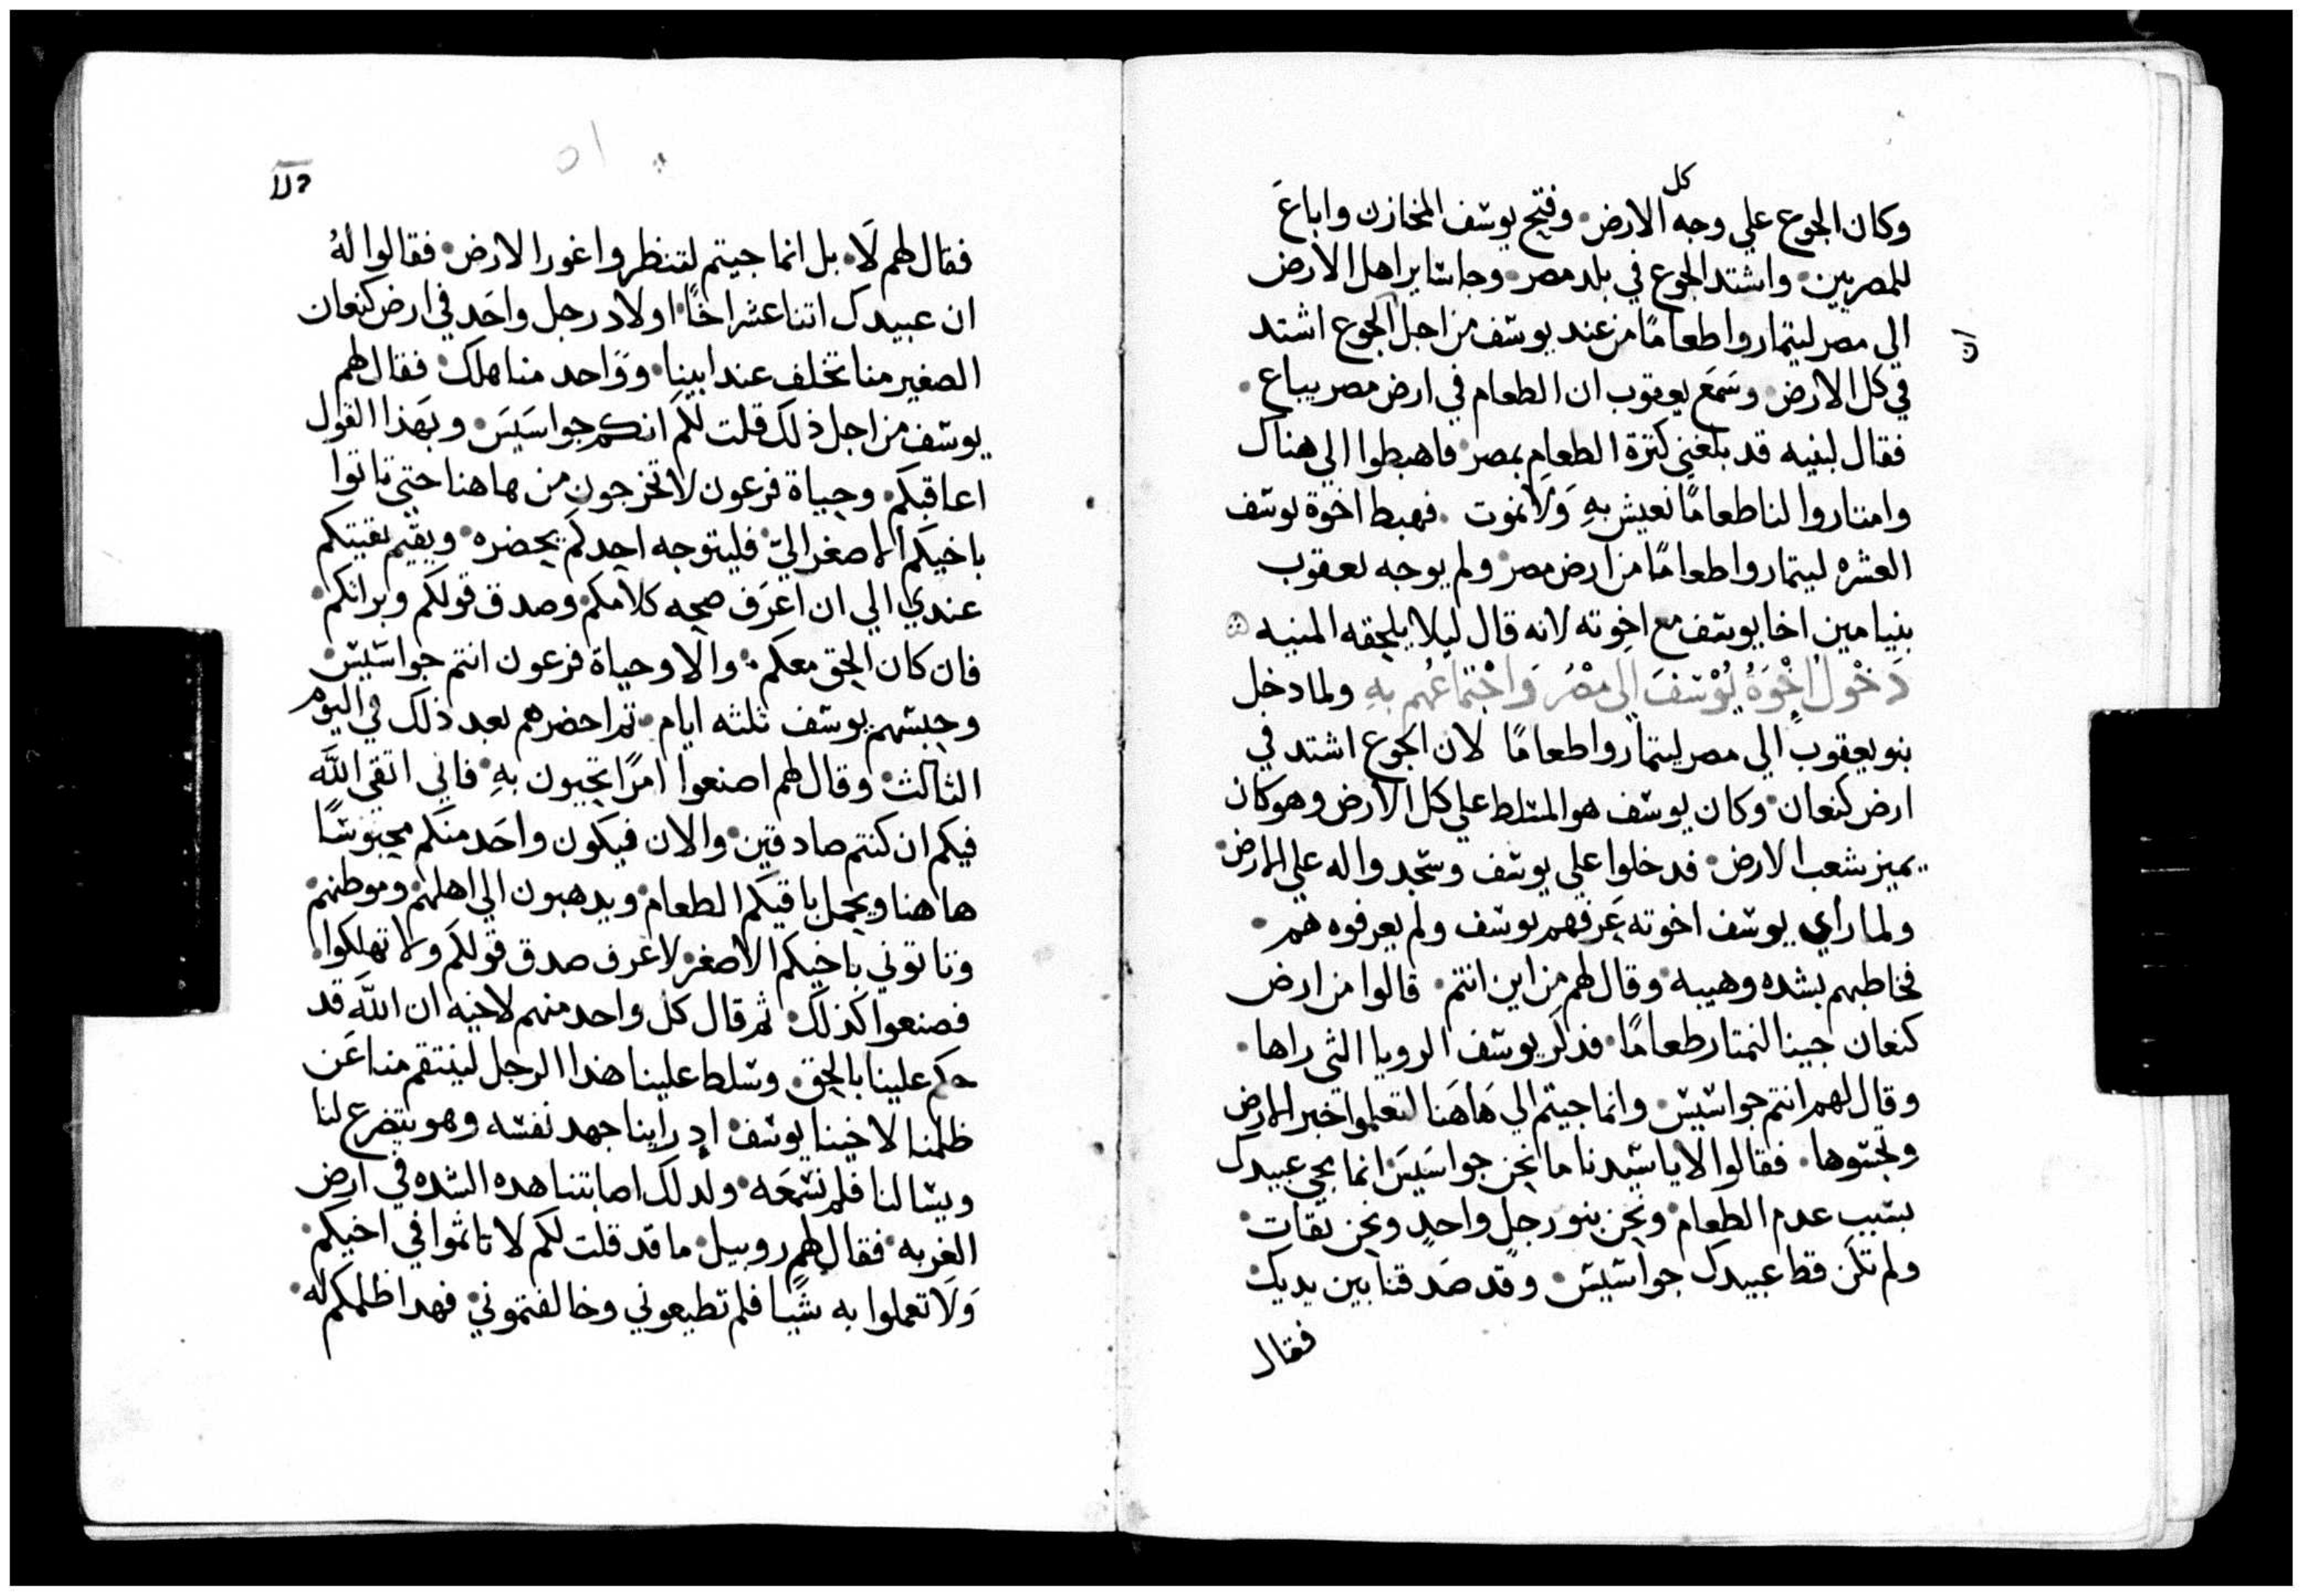 كل
وكان الجوع علي وجه الارض. وفتح يوسف المخازن واباع
للمصريين. واشتد الجوع في بلد مصر. وجا ساير اهل الارض
الي مصر ليتماروا طعامًا من عند يوسف من اجل الجوع اشتد
في كل الارض. وسَمَع يعقوب ان الطعام في ارض مصر يباع.
فقال لبنيه قد بلغني كترة الطعام بمصر. فاهبطوا الي هناك
وامتاروا لنا طعامًا نعيش بهِ وَلا نموت. فهبط اخوة يوسف
العشره ليتماروا طعامًا من ارض مصر. ولم يوجه يعقوب
بنيامين اخا يوسف مع اخوته لانه قال ليلا يلحقه المنيه
دَخُول اخْوَةُ يُوْسَفَ الي مصْرَ وَاجْتمَاعُهم بهِ ولما دخل
بنو يعقوب الي مصر ليتماروا طعامًا لان الجوع اشتد في
ارض كنعان. وكان يوسف هو المتسلط علي كل الارض وهو كان
يميز شعب الارض. فدخلوا علي يوسف وسجدوا له علي الارض.
ولما رأي يوسف اخوته عَرفهم يوسف ولم يعرفوه هم.
فخاطبهم بشده وهيبه. وقال لهم من اين انتم. قالوا من ارض
كنعان جينا لنمتار طعامًا. فدكر يوسف الرويا التى راها.
وقال لهم انتم جواسيس. وانما جيتم الي هَاهَنا لتعلموا خبر الارض
وتجسوها. فقالوا لا يا سيدنا ما نحن جواسَيسَ. انما يجي عبيدك
بسبب عدم الطعام. ونحن بنو رجل واحد ونحن ثقات.
ولم تكن قط عبيدك جواسيس. وقد صَدقنا بين يديك.
فقال
فقال لهم لَا. بل انما جيتم لتنظروا غور الارض. فقالوا لهُ
ان عبيدك اتنا عشر اخًا. اولاد رجل واحَد في ارض كنعان
الصغير منا تخلف عند ابينا. ووَاحد منا هلك. فقال لهم
يوسف من اجل ذلك قلت لكم انكم جواسَيسَ. وبهَذا القول
اعاقبكم. وحياة فرعون لا تخرجون من هاهنا حتي تاتوا
باخيكم الاصغر اليّ. فليتوجه احدكم يحضره. ويقيم بقيتكم
عندي الي ان اعرَف صحه كلامكم. وصدق قولكم وبرانكم.
فان كان الحق معكم. والا وحياة فرعون انتم جواسيس.
وحبسهم يوسف تلته ايام. تم احضرهم بعد ذلك في اليوم
الثالث. وقال لهم اصنعوا امرًا تحيون بهِ. فاني اتقي اللّه
فيكم ان كنتم صادقين. والان فيكون واحَد منكم محبوسًا
هاهنا ويحمل باقيكم الطعام. ويدهبون الي اهلهم. وموطنهم.
وتاتوني باخيكم الاصغر. لاعرف صدق قولكم ولا تهلكوا.
فصنعوا كذلك. ثم قال كل واحد منهم لاخيه ان اللّه قد
حكم علينا بالحق. وسلط علينا هدا الرجل لينتقم منا عَن
ظلمنا لاخينا يوسف. اد راينا جهد نفسه وهو يتضرع لنا
ويسالنا فلم نسمعَه. ولدلك اصابتنا هده الشده في ارض
الغربه. فقال لهم روبيل. ما قد قلت لكم لا تاثموا في اخيكم.
وَلَا تعملوا به شَيًا فلم تطيعوني وخالفتموني. فهدا ظلمكم له.